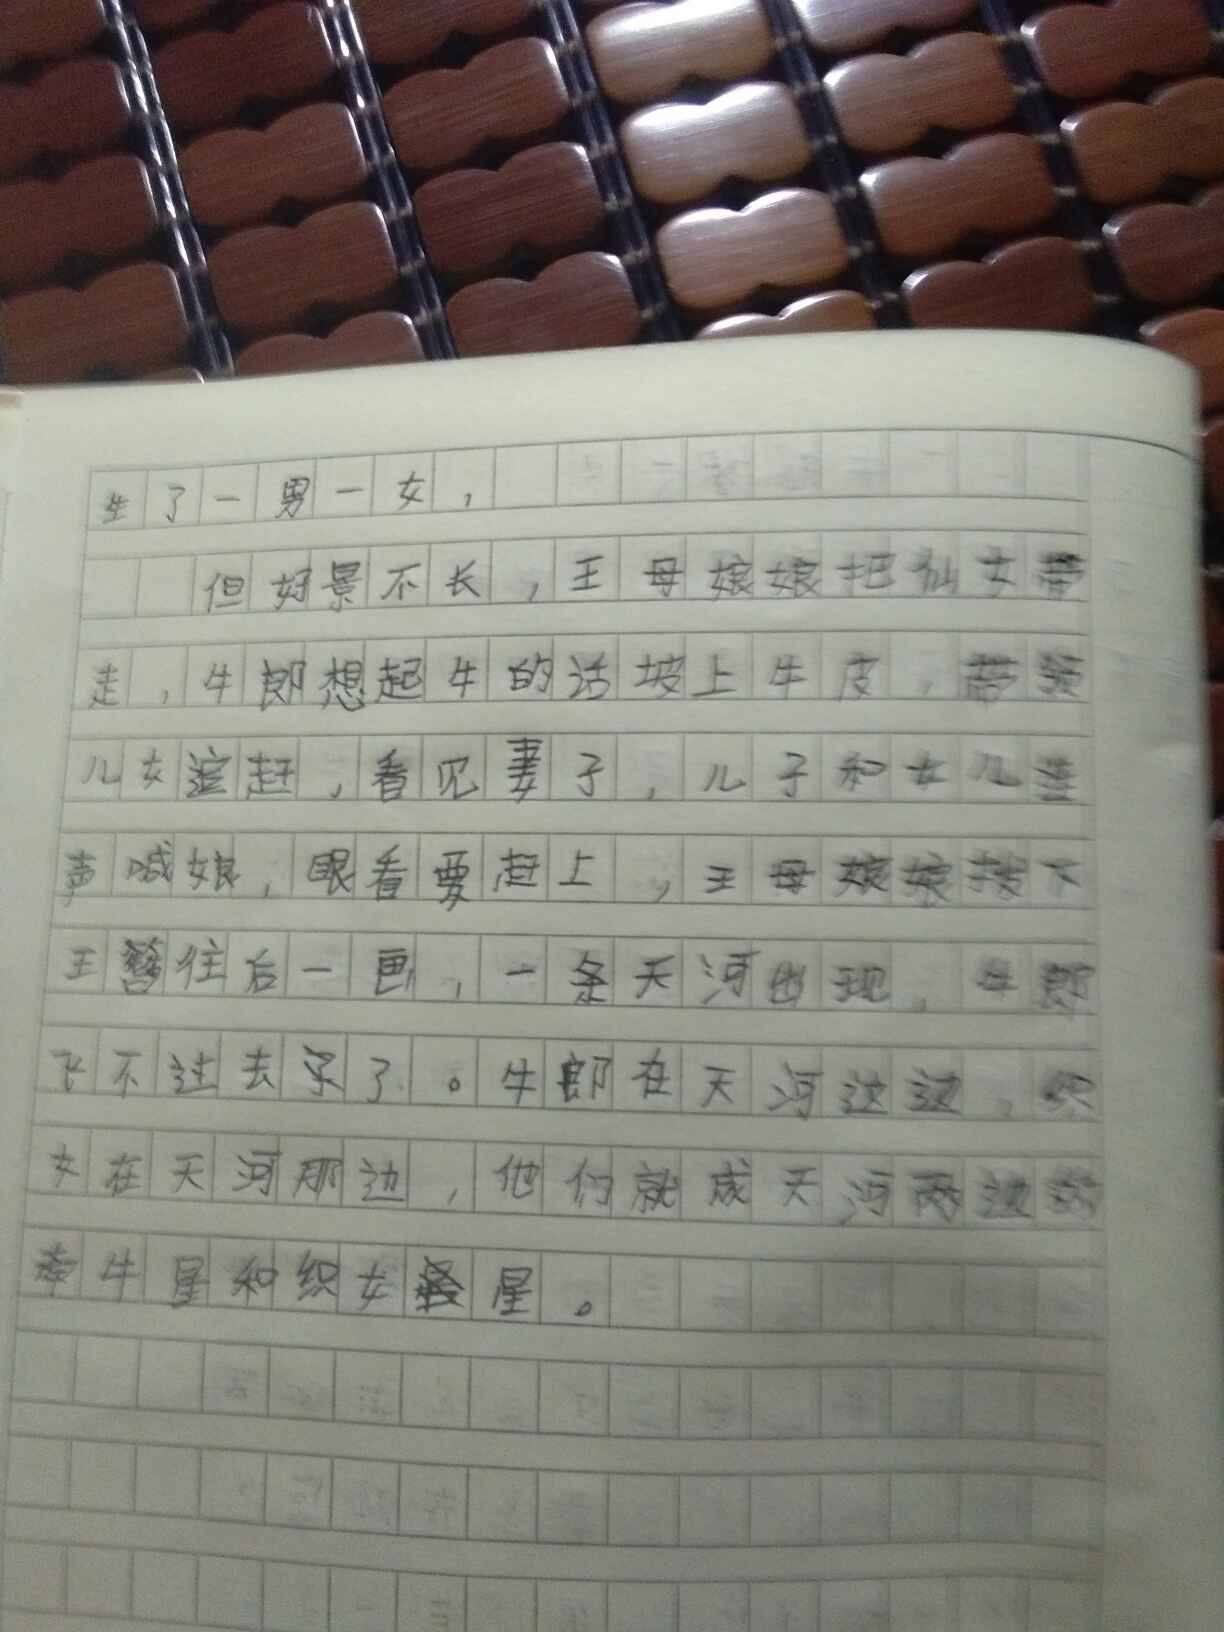 生了一男一女，
但好景不长，王母娘娘把仙女带
走，牛郎想起牛的话坡上牛皮，带领
儿女追赶，看见妻子，儿子和女儿连
声喊娘，眼看要赶上，王母娘娘拔下
王簪往后一画，一条天河出现，牛郎
飞不过去了。牛郎在天河这边，织
女在天河那边，他们就成天河两边的
牵牛星和织女星。